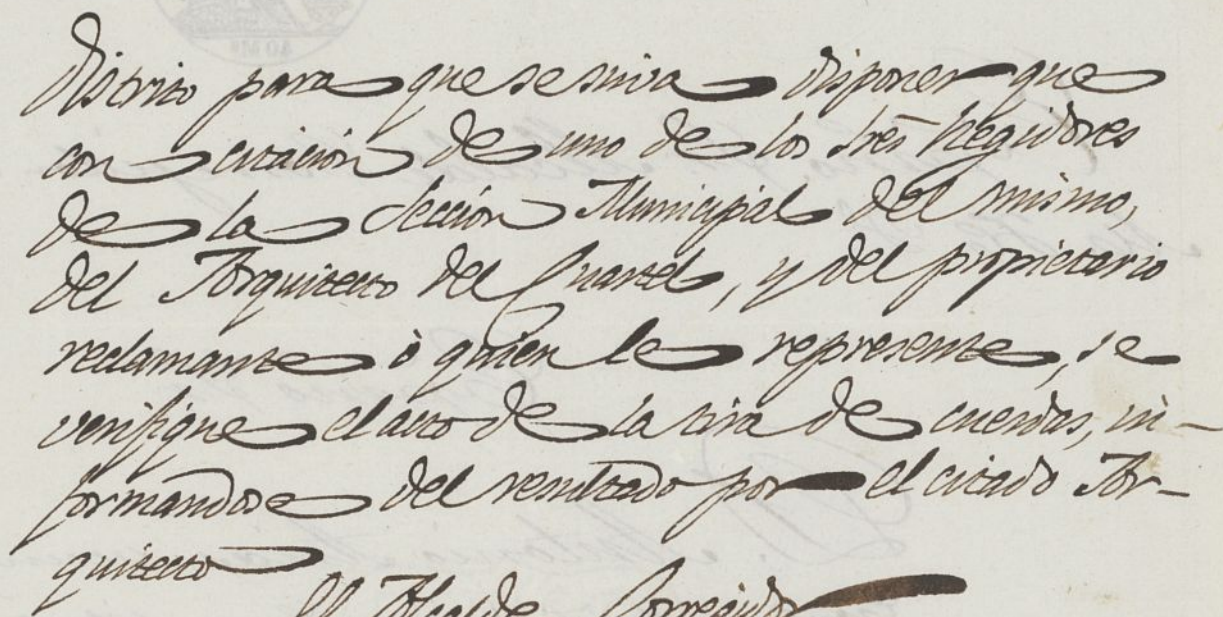 distrito para que se sirva disponer que
con citacion de uno de los tres Regidores
de la Seccion Municipal del mismo,
del Arquitecto del Cuartel, y del propietario
reclamante ó quien le represente, se
verifique el acto de la tira de cuerdas, in-
formandose del resultado por el citado Ar-
quitecto
El Alcalde Corregidor